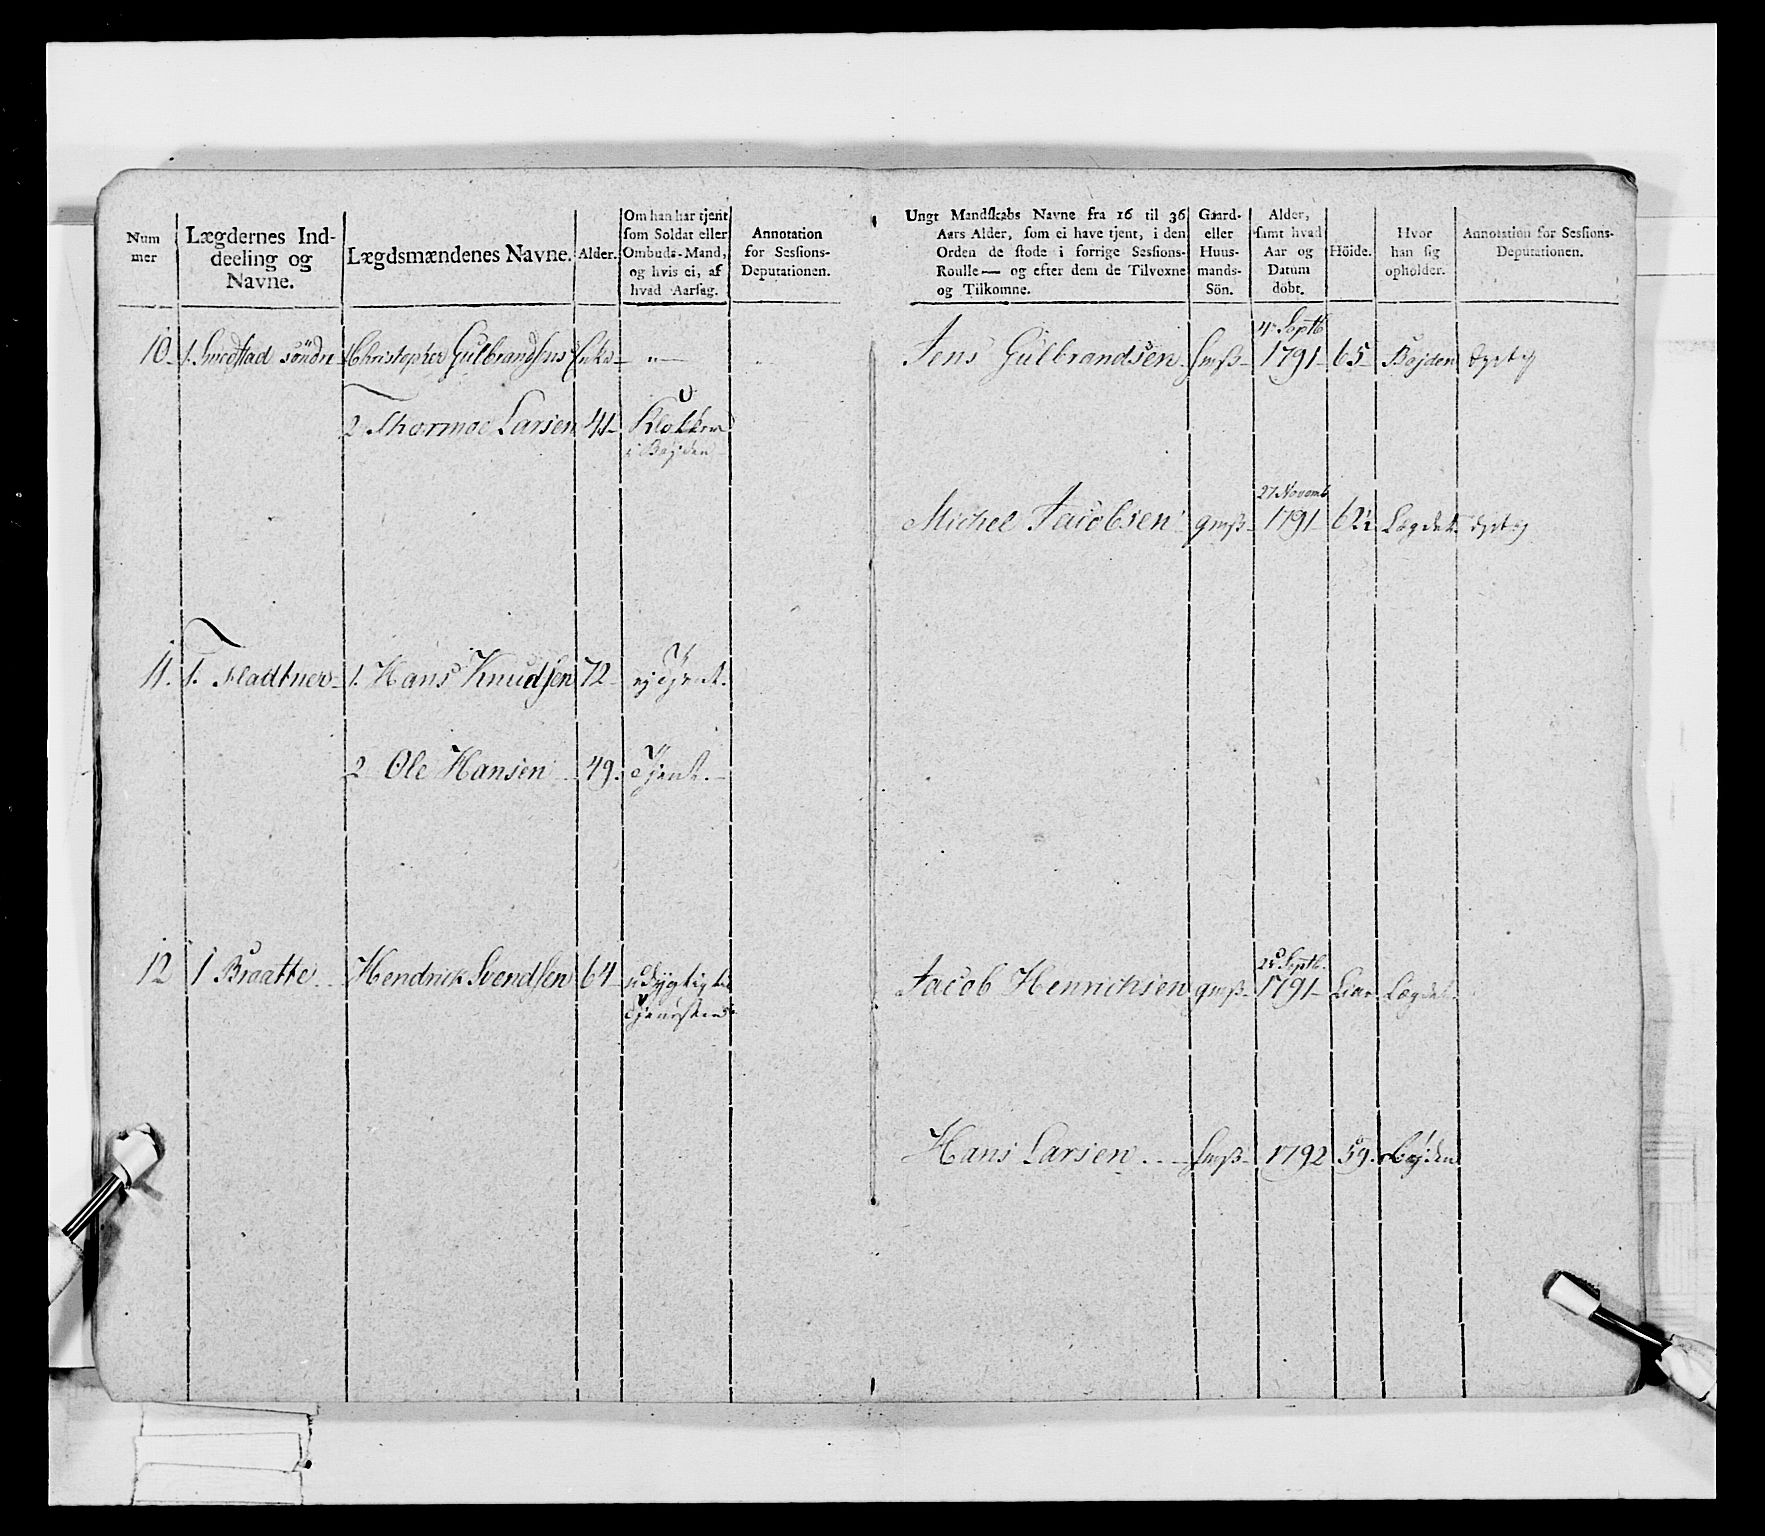 Num
mer
Lægdernes Ind-
deeling og
Navne.
Lægdsmændenes Navne.
Alder.
Om han har tjent
som Soldat eller
Ombuds-Mand,
og hvis ei, af
hvad Aarsag.
Annotation
for Sessions-
Deputationen.
Ungt Mandskabs Navne fra 16 til 36
Aars Alder, som ei have tjent, i den
Orden de stode i forrige Sessions-
Roulle — og efter dem de Tilvoxne
og Tilkomne.
Gaard-
eller
Huus-
mands-
Sön.
Alder,
samt hvad
Aar og
Datum
döbt.
Höide.
Hvor
han sig
opholder.
Annotation for Sessions-
Deputationen.
10 1. Smedstad söndre 1 Christopher Gulbrandsens Enke
4. Septb
Jens Gulbrandsen 1791 65 Bøjden
2 Thormoe Larsen 41 Klokker
i Bøjden
27 Novemb
Michel Jacobsen gmß 1791 62½ Lægdet
11. 1. Fladtner 1. Hans Knudsen 72 ej Tjent.
2 Ole Hansen 49. Tjent.
12 1 Braatte Hendrick Svendsen 64 udygtig til
Tjenesten
Septb.
Jacob Henrichsen gmß 1791 Lægdet
Hans Larsen 1792 59. Bøjden